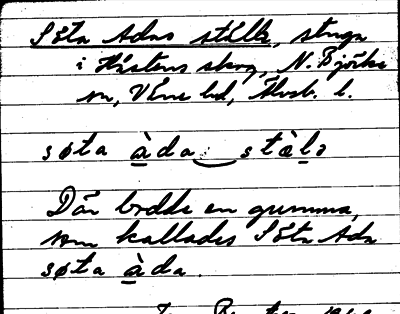 Söta Adas ställe, stuga
i Håstens skog, N. Björke
sn, Väne hd, Älvsb. l.
søta àda ‿ stɛ̀lə
Där bodde en gumma,
som kallades Söta Ada
søta àda.